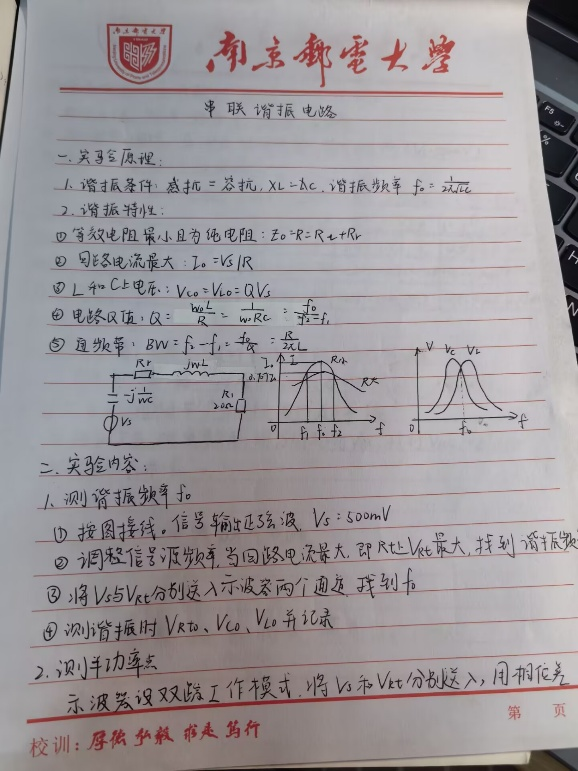 南京邮电大学
南京郵電大学
串联谐振电路
一.实验原理:
1.谐振条件:感抗=容抗,XL=Xc.谐振频率 f₀=1/2π√LC
2.谐振特性:
① 等效电阻最小且为纯电阻:Z₀=R=Rt+Rr
② 回路电流最大:I₀=Vs/R
③ L和C上电压:Vco=VLo=QVs
④ 电路Q值:Q=w₀L/R=1/w₀RC=f₀/f₂-f₁
⑤ 通频带:BW=f₂-f₁=f₀/Q=R/2πL
Rr jwL
j1/wC
Vs
R1
20Ω
I₀ I R小
0.707I₀
R大
0 f₁ f₀ f₂ f
V Vc VL
0 f₀ f
二.实验内容:
1.测谐振频率f₀
① 按图接线。信号输出正弦波,Vs:500mV
② 调整信号源频率,当回路电流最大,即Rt上VRt最大,找到谐振频
③ 将Vs与VRt分别送入示波器两个通道,找到f₀
④ 测谐振时VRto、Vco、VLo并记录
2.测半功率点
示波器设双踪工作模式.将Vs和VRt分别送入,用相位差
第 页
校训:厚德 弘毅 求是 笃行